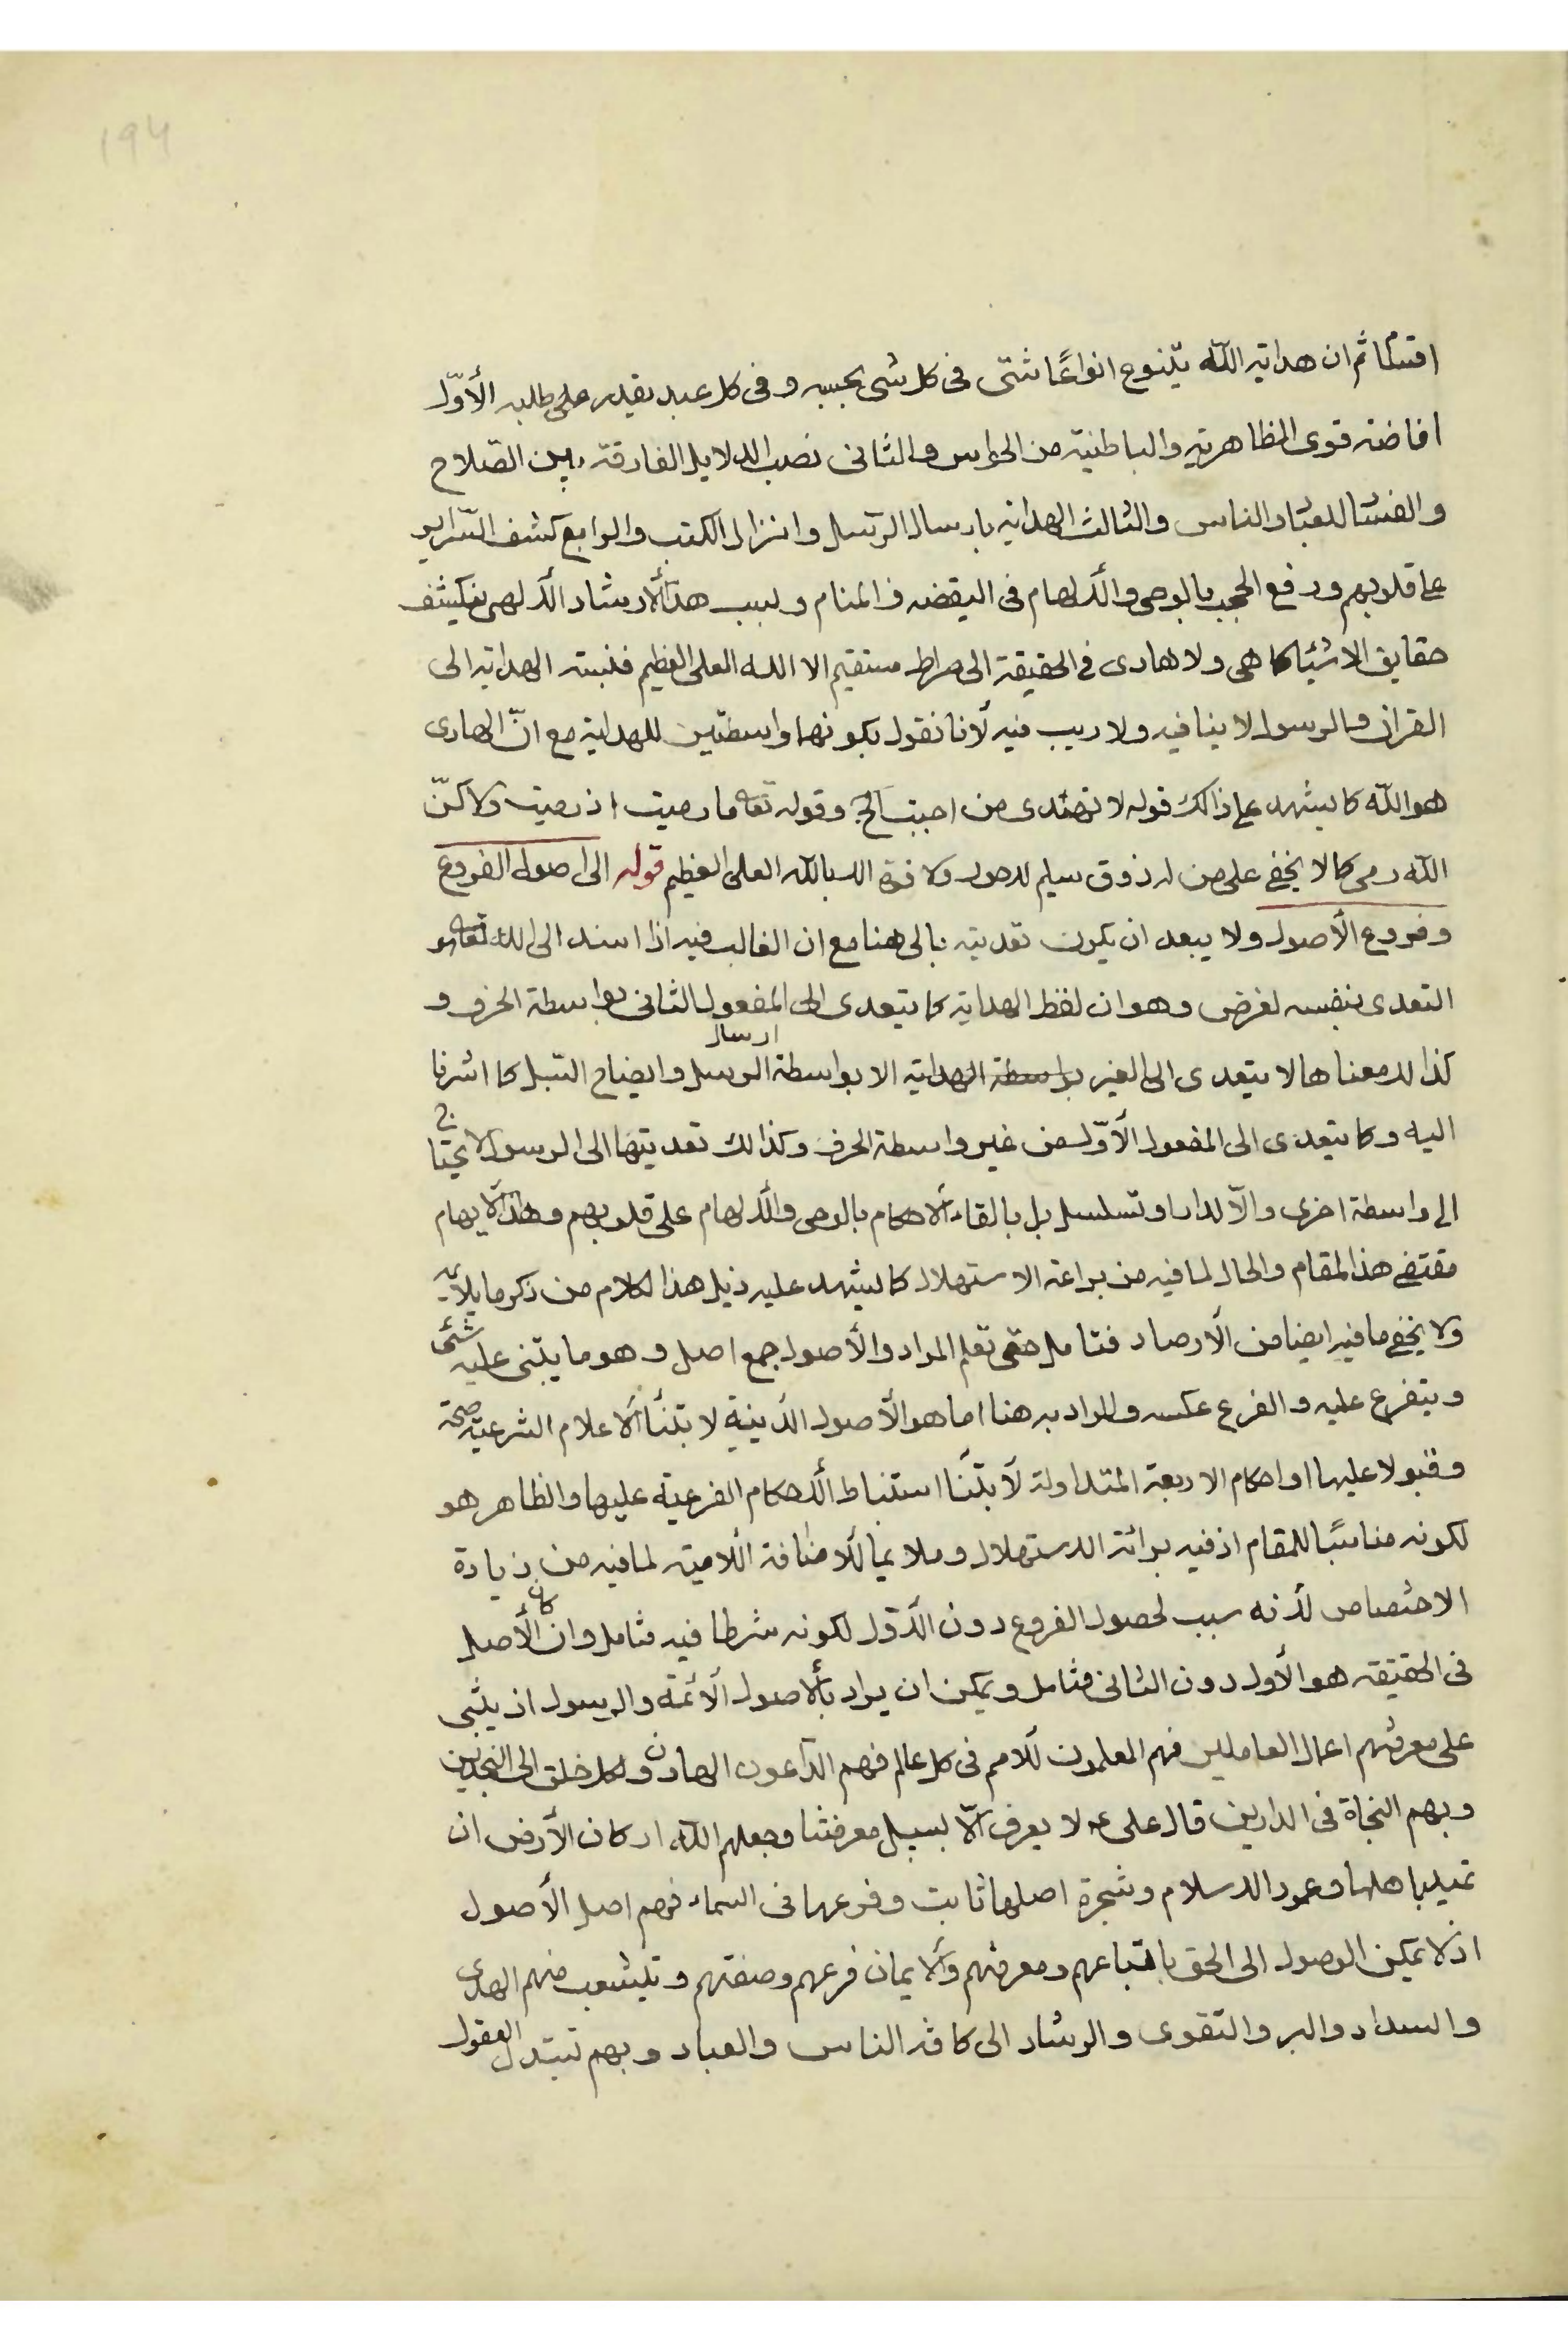 194
اقتسامًا ثم ان هداية الله يتنوع انواعًا شتى فى كل شى بحسبه و فى كل عبد بقدر على طلبه الأوّل
افاضة قوى الظاهرية والباطنية من الحواس والثانى نصب الدلايل الفارقة بين الصّلاح
والفساد للعباد والناس والثالث الهداية بارسال الرّسل وانزال الكتب والرابع كشف السّراير
على قلوبهم ورفع الحجب بالوحى والألهام فى اليقضه والمنام وبسبب هذا الأرشاد الألهى ينكشف
حقايق الاشيا كما هى ولا هادى فى الحقيقة الى صراط مستقيم الا الله العلى العظيم فنسبته الهداية الى
القران والرسول لا ينافيه ولا ريب فيه لأنا نقول بكونهما واسطتين للهداية مع انّ الهادى
هو الله كما يشهد على ذالك قوله لا تهتدى من احببت الخ وقوله تعه ما رميت اذ رميت ولاكنّ
الله رمى كما لا يخفى على من له ذوق سليم لاحول ولا قوة الا بالله العلى العظيم قوله الى اصول الفروع
وفروع الأصول ولا يبعد ان يكون تعديته بالى هنا مع ان الغالب فيه اذا اسند الى الله تعه هو
التعدى بنفسه لغرض وهو ان لفظ الهداية كما يتعدى الى المفعول الثانى بواسطة الحرف و
كذا لا معناها لا يتعدى الى الغير بواسطة الهداية الا بواسطة ارسال الرسل وايضاح السّبل كما اشرنا
اليه وكما يتعدى الى المفعول الأوّل من غير واسطة الحرف وكذالك تعديتها الى الرسول لا يحتاج
الى واسطة اخرى والاّ لدار او تسلسل بل بالقاء الأحكام بالوحى والألهام على قلوبهم وهذا الأيهام
مقتضى هذا المقام والحال لما فيه من براعة الاستهلال كما يشهد عليه ذيل هذا الكلام من ذكر ما يلا
ولا يخفى ما فيه ايضا من الأرصاد فتامل حتى تعلم المراد والأصول جمع اصل وهو ما يبتنى عليه شئى
ويتفرع عليه والفرع عكسه والمراد به هنا اما هو الأصول الدّينية لابتنا الأعلام الشرعية صحة
وقبولا عليها او احكام الاربعة المتداولة لأبتنا استنباط الأحكام الفرعية عليها والظاهر هو
لكونه مناسبًا للمقام اذ فيه برائة الاستهلال وملايما للاضافة اللامية لما فيه من زيادة
الاختصاص لأنه سبب لحصول الفروع دون الأوّل لكونه شرطا فيه فتامل وان كان الأصل
فى الحقيقه هو الأول دون الثانى فتامل ويمكن ان يراد بالأصول الأئمة والرسول اذ يبتنى
على معرفتهم اعمال العاملين فهم المعلمون للامم فى كل عالم فهم الدّاعون الهادون لكل خلق الى النجدين
وبهم النجاة فى الدارين قال على عه لا يعرف الاّ بسبيل معرفتنا وجعلهم الله اركان الأرض ان
تميد باهلها وعمود الاسلام وشجرة اصلها ثابت وفرعها فى السماء فهم اصل الأصول
اذ لا يمكن الوصول الى الحق باتباعهم ومعرفتهم والأيمان فرعهم وصفتهم وتيشعب منهم الهدى
والسداد والبر والتقوى والرشاد الى كافة الناس والعباد وبهم تبتدل العقول